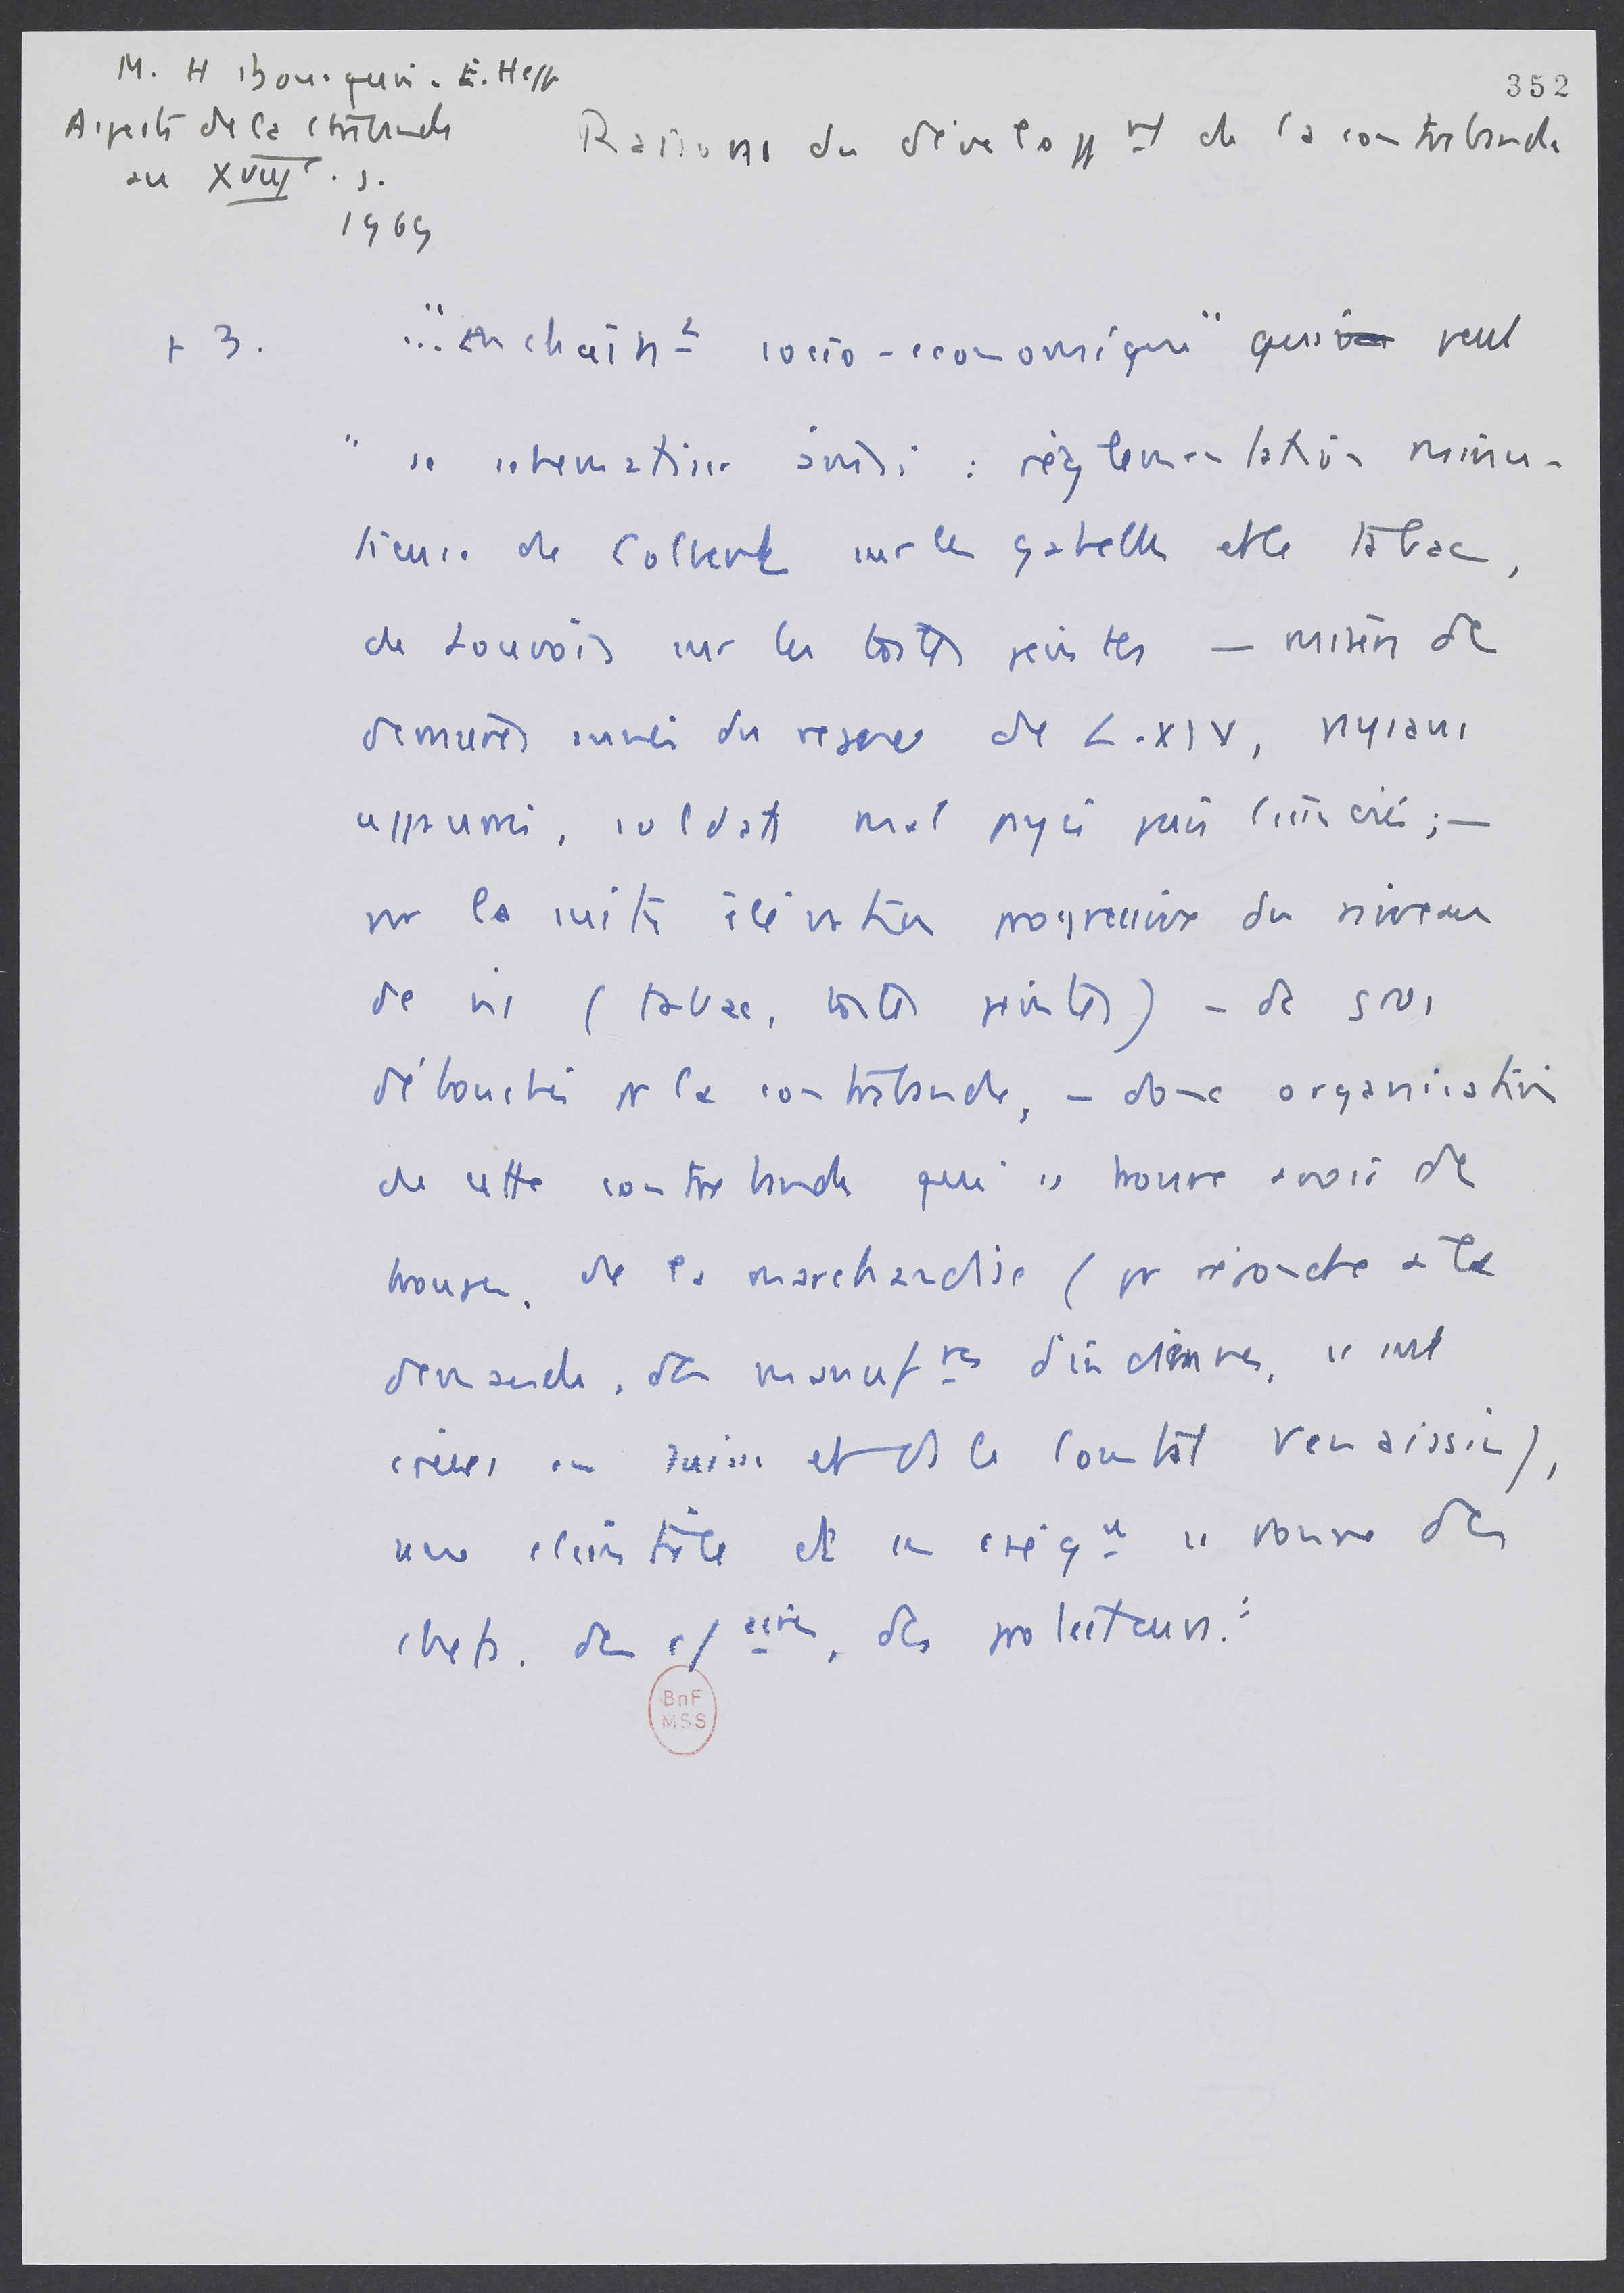 M. H Bourquin. E. Hepp
Aspects de la ctrebande
au XVIIIe. s.
1969
352
Raisons du developpt de la contrebande
p 3.
..."enchaint socio-economique" qui peut
" se schematiser ainsi : réglementation minu-
tieuse de Colbert sur les gabelles et le tabac,
de Louvois sur les toiles peintes — misère de
dernières années du regne de L. XIV, paysans
opprimés, soldats mal payés puis licenciés ; —
par la suite élévation progressive du niveau
de vie (tabac, toiles peintes) - de gros
débouchés pr la contrebande, - donc organisation
de cette contrebande qui se trouve avoir de
troupes, de la marchandise (pr répondre à la
demande, des manufres d'indiennes, se sont
créées en Suisse et ds le Comtat Venaissin),
une clientèle et en conséqu se trouve des
chefs. des df aires, des protecteurs."
BnF
MSS